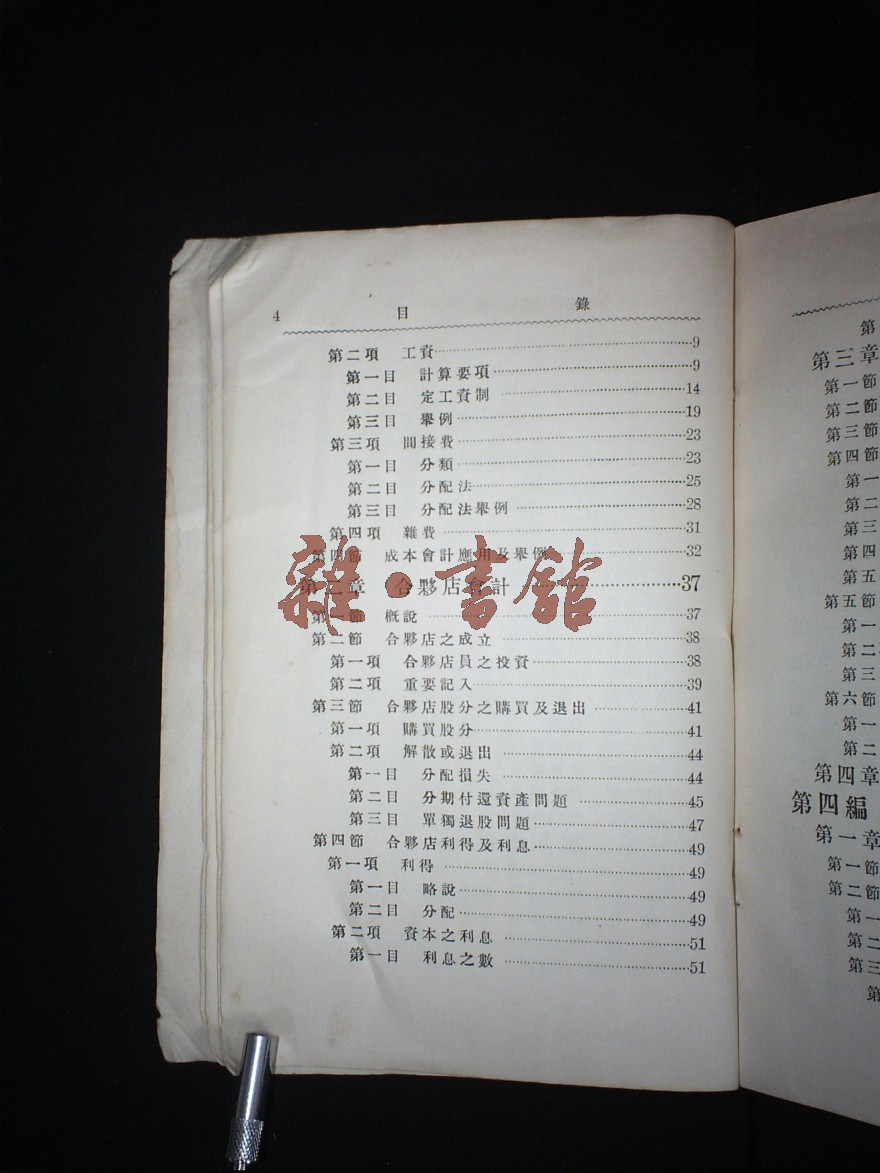 4 目 錄
第二項 工資………9
第一目 計算要項………9
第二目 定工資制………14
第三目 舉例………19
第三項 間接費………23
第一目 分類………23
第二目 分配法………25
第三目 分配法舉例………28
第四項 雜費………31
第四節 成本會計應用及舉例………32
第二章 合夥店會計………37
第一節 概說………37
第二節 合夥店之成立………38
第一項 合夥店員之投資………38
第二項 重要記入………39
第三節 合夥店股分之購買及退出………41
第一項 購買股分………41
第二項 解散或退出………44
第一目 分配損失………44
第二目 分期付還資產問題………45
第三目 單獨退股問題………47
第四節 合夥店利得及利息………49
第一項 利得………49
第一目 略說………49
第二目 分配………49
第二項 資本之利息………51
第一目 利息之數………51
雜·書館
第
第三章
第一節
第二節
第三節
第四節
第一
第二
第三
第四
第五
第五節
第一
第二
第三
第六節
第一
第二
第四章
第四編
第一章
第一節
第二節
第一
第二
第三
第